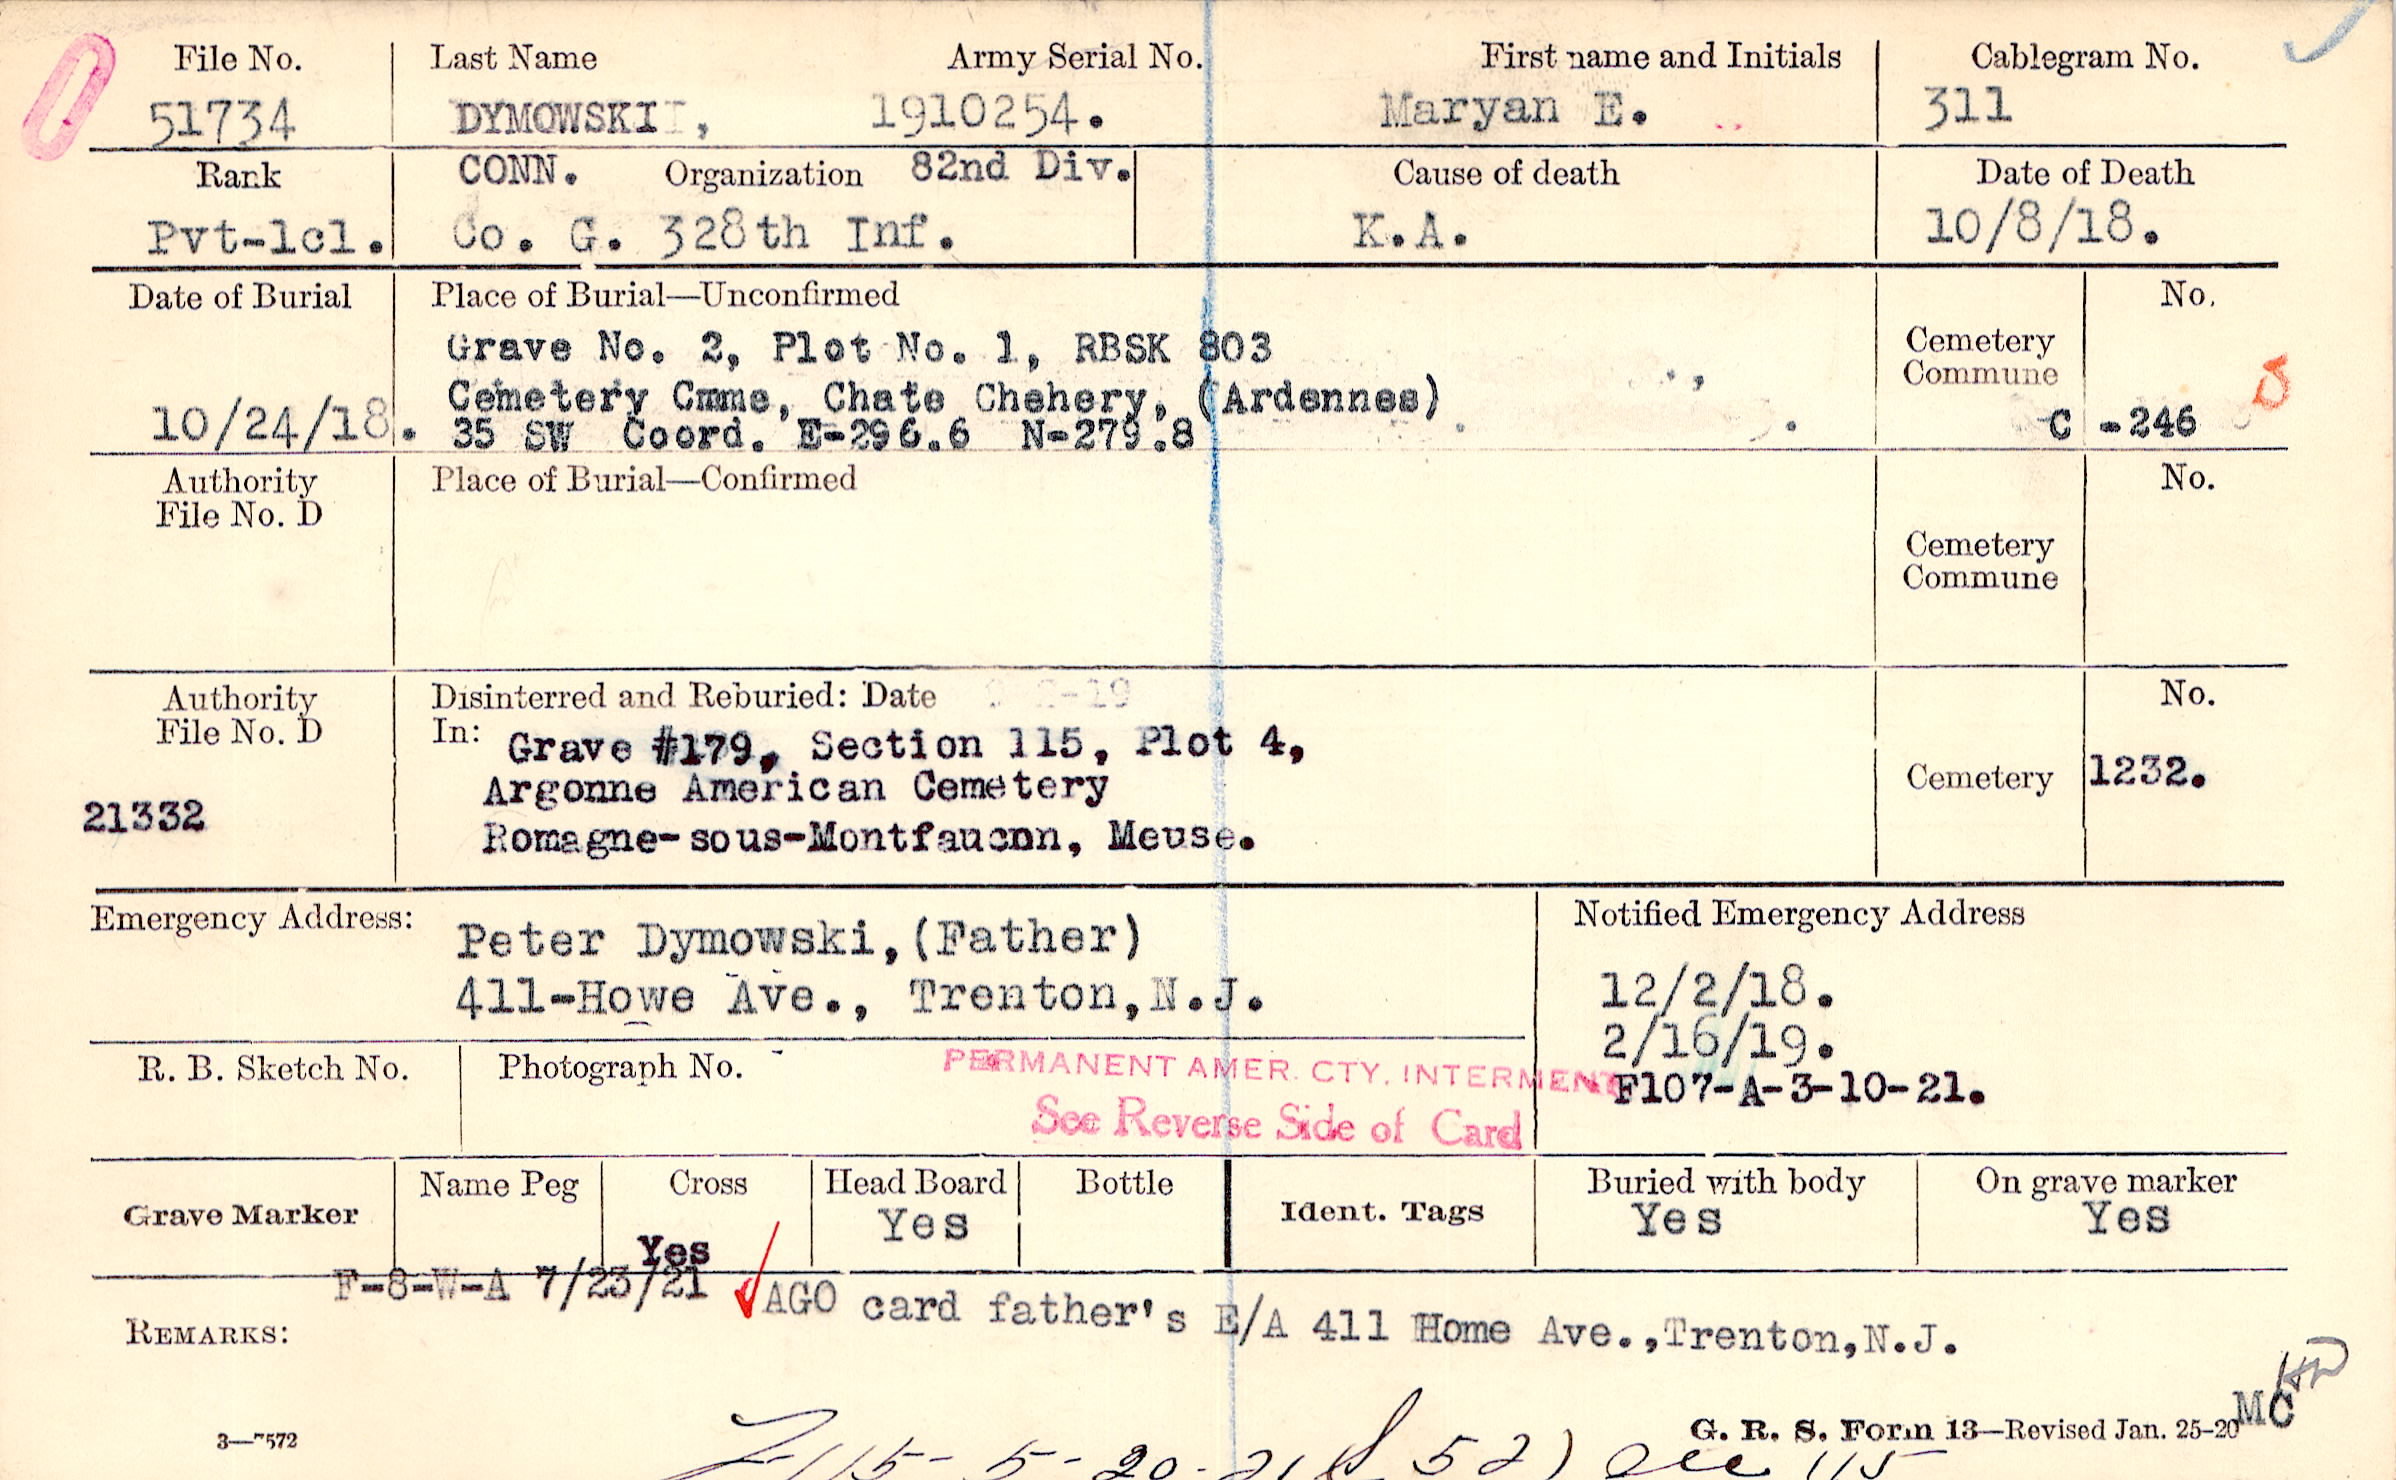 File No. Last Name Army Serial No. First name and Initials Cablegram No.
51734 DYMOWSKI, 1910254. Maryan E. 311
Rank CONN. Organization 82nd Div. Cause of death Date of Death
Pvt-1cl. Co. G. 328th Inf. K.A. 10/8/18.
Date of Burial Place of Burial—Unconfirmed No.
Grave No. 2, Plot No. 1, RBSK 803
Cemetery
Commune
Cemetery Cmme, Chate Chehery, (Ardennes)
10/24/18. 35 SW Coord. E-296.6 N-279.8 C -246
Authority Place of Burial—Confirmed No.
File No. D
Cemetery
Commune
Authority Disinterred and Reburied: Date -19 No.
File No. D In: Grave #179, Section 115, Plot 4,
Argonne American Cemetery Cemetery 1232.
21332
Romagne-sous-Montfaucnn, Meuse.
Emergency Address: Peter Dymowski,(Father) Notified Emergency Address
411-Howe Ave., Trenton,N.J. 12/2/18.
2/16/19.
R. B. Sketch No. Photograph No. PERMANENT AMER. CTY. INTERMENT F107-A-3-10-21.
See Reverse Side of Card
Grave Marker Name Peg Cross Head Board Bottle Ident. Tags Buried with body On grave marker
Yes Yes Yes Yes
F-8-W-A 7/23/21 AGO card father's E/A 411 Home Ave.,Trenton,N.J.
REMARKS:
3—7572 G. R. S. Form 13—Revised Jan. 25-20 MC
115- 5-20-21 52)